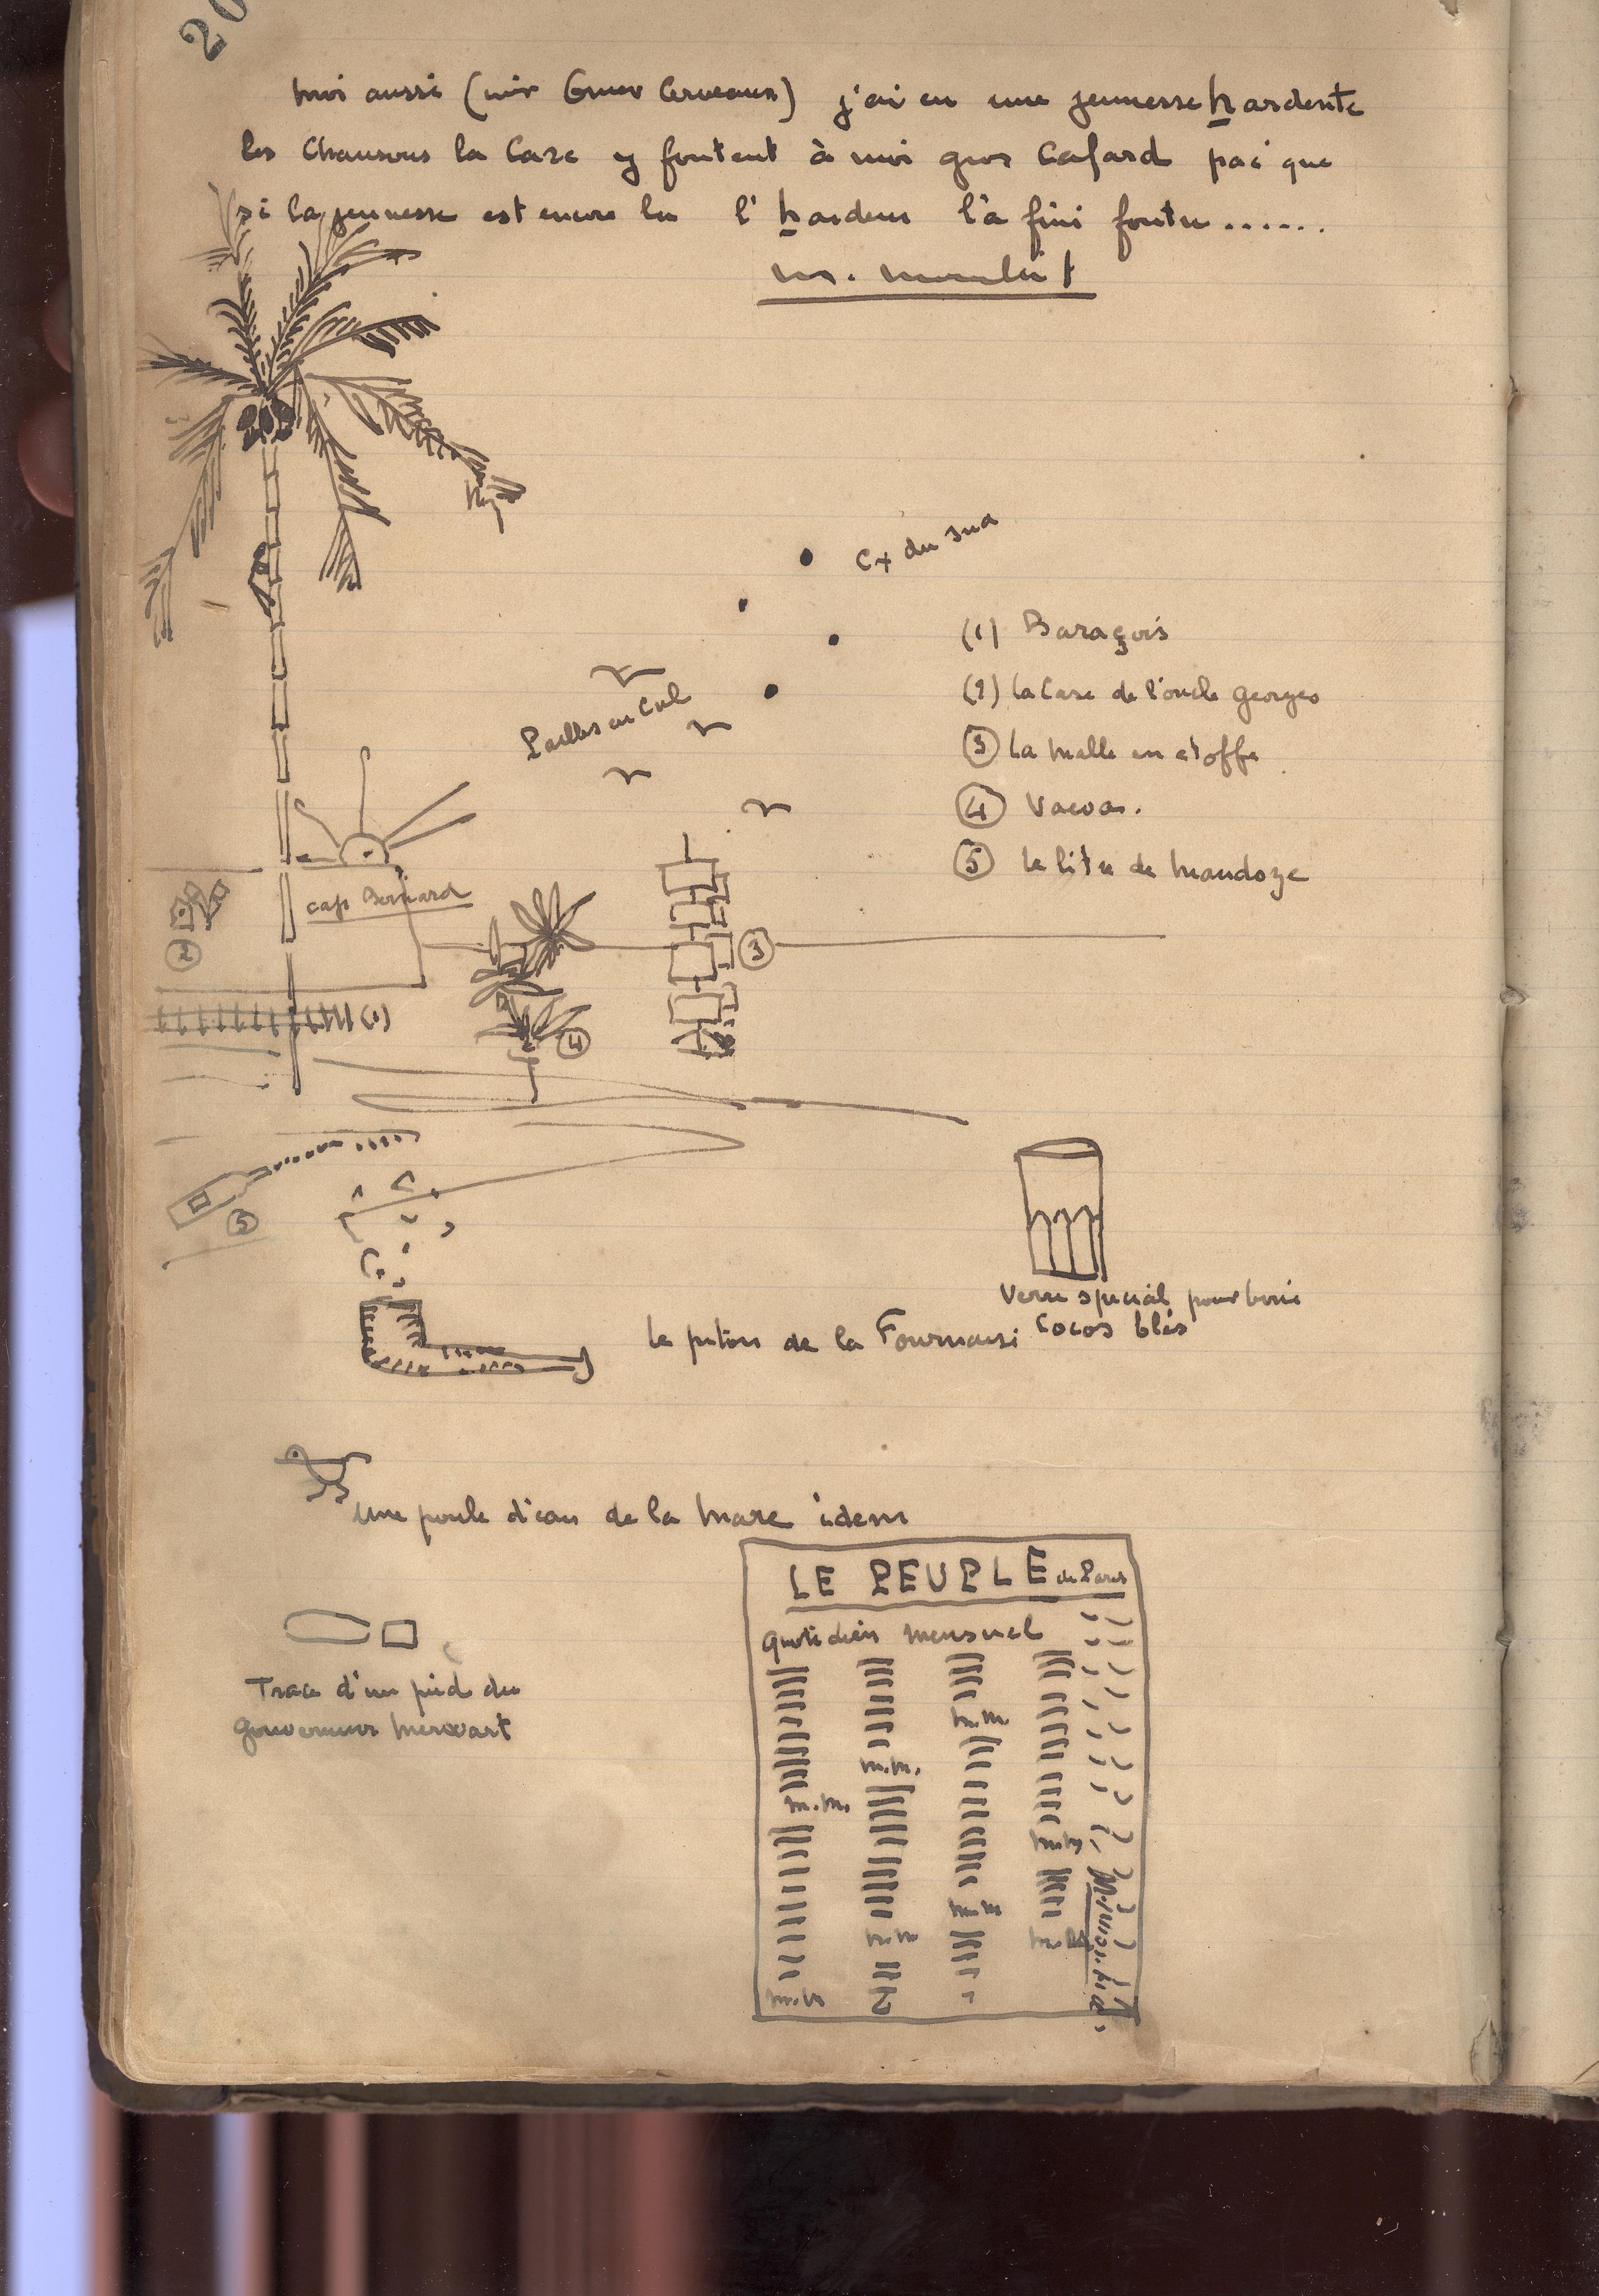 20
moi aussi (voir j'ai eu une jeunesse hardente
les Chansons la Case y foutent à moi gros Cafard pac' que
si la jeunesse est encore là l'hardeur l'a fini foutu......
Cx du sud
Pailles en Cul
(1) Baraçois
(2) la Case de l'oncle Georges
(3) la malle en étoffe
(4) Vacoa.
(5) le litre de
cap Bernard
2
3
(1)
4
5
Verre spécial pour boire
Cocos
le piton de la Fournaise
une poule d'eau de la mare idem
LE PEUPLE de Paris
Quotidien mensuel
Trace d'un pied du
gouverneur Merwart
m.m.
m.m.
m.m.
m.m.
m.m.
m.m.
m.m.
m.m.